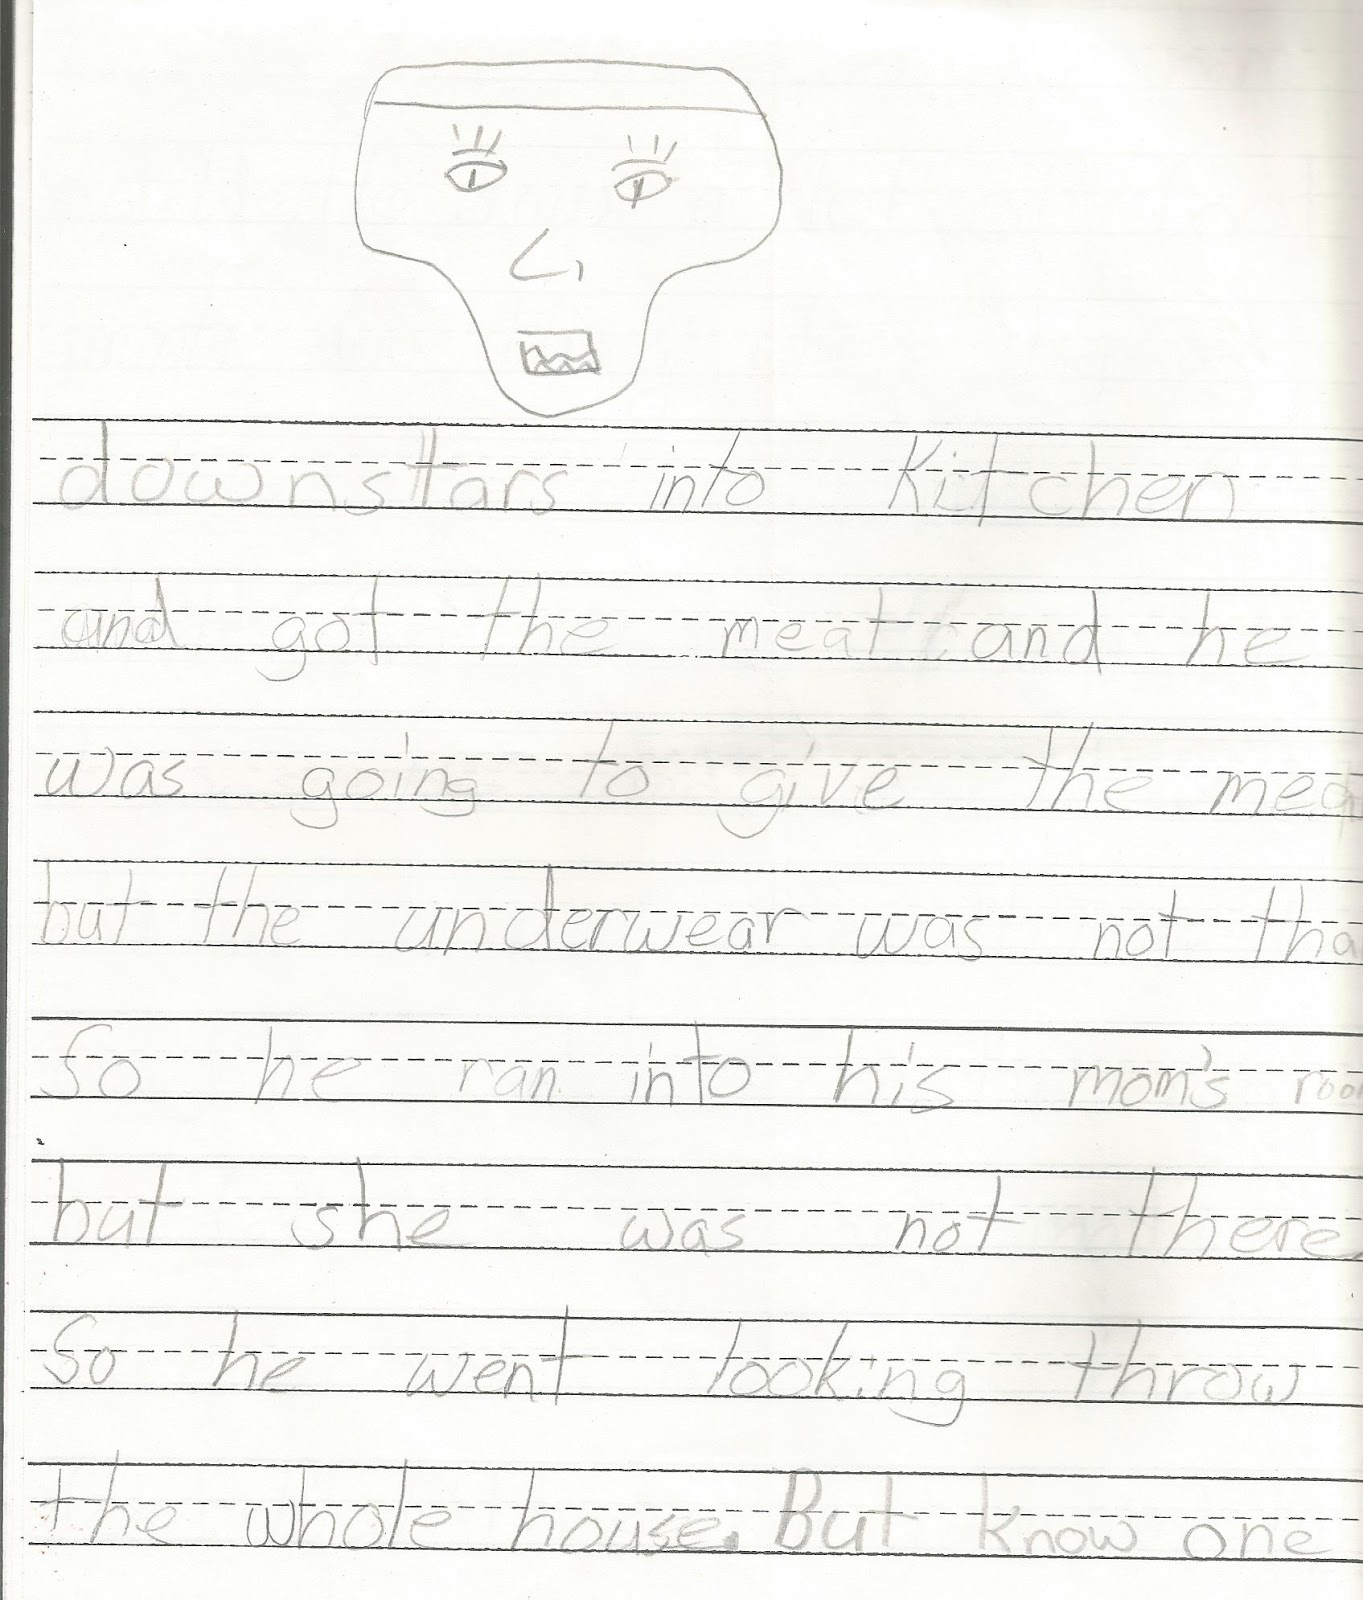 downsttars into Kitchen
and got the meat and he
was going to give the mea
but the underwear was not tha
So he ran into his mom's room
but she was not there
So he went looking throw
the whole house. But know one